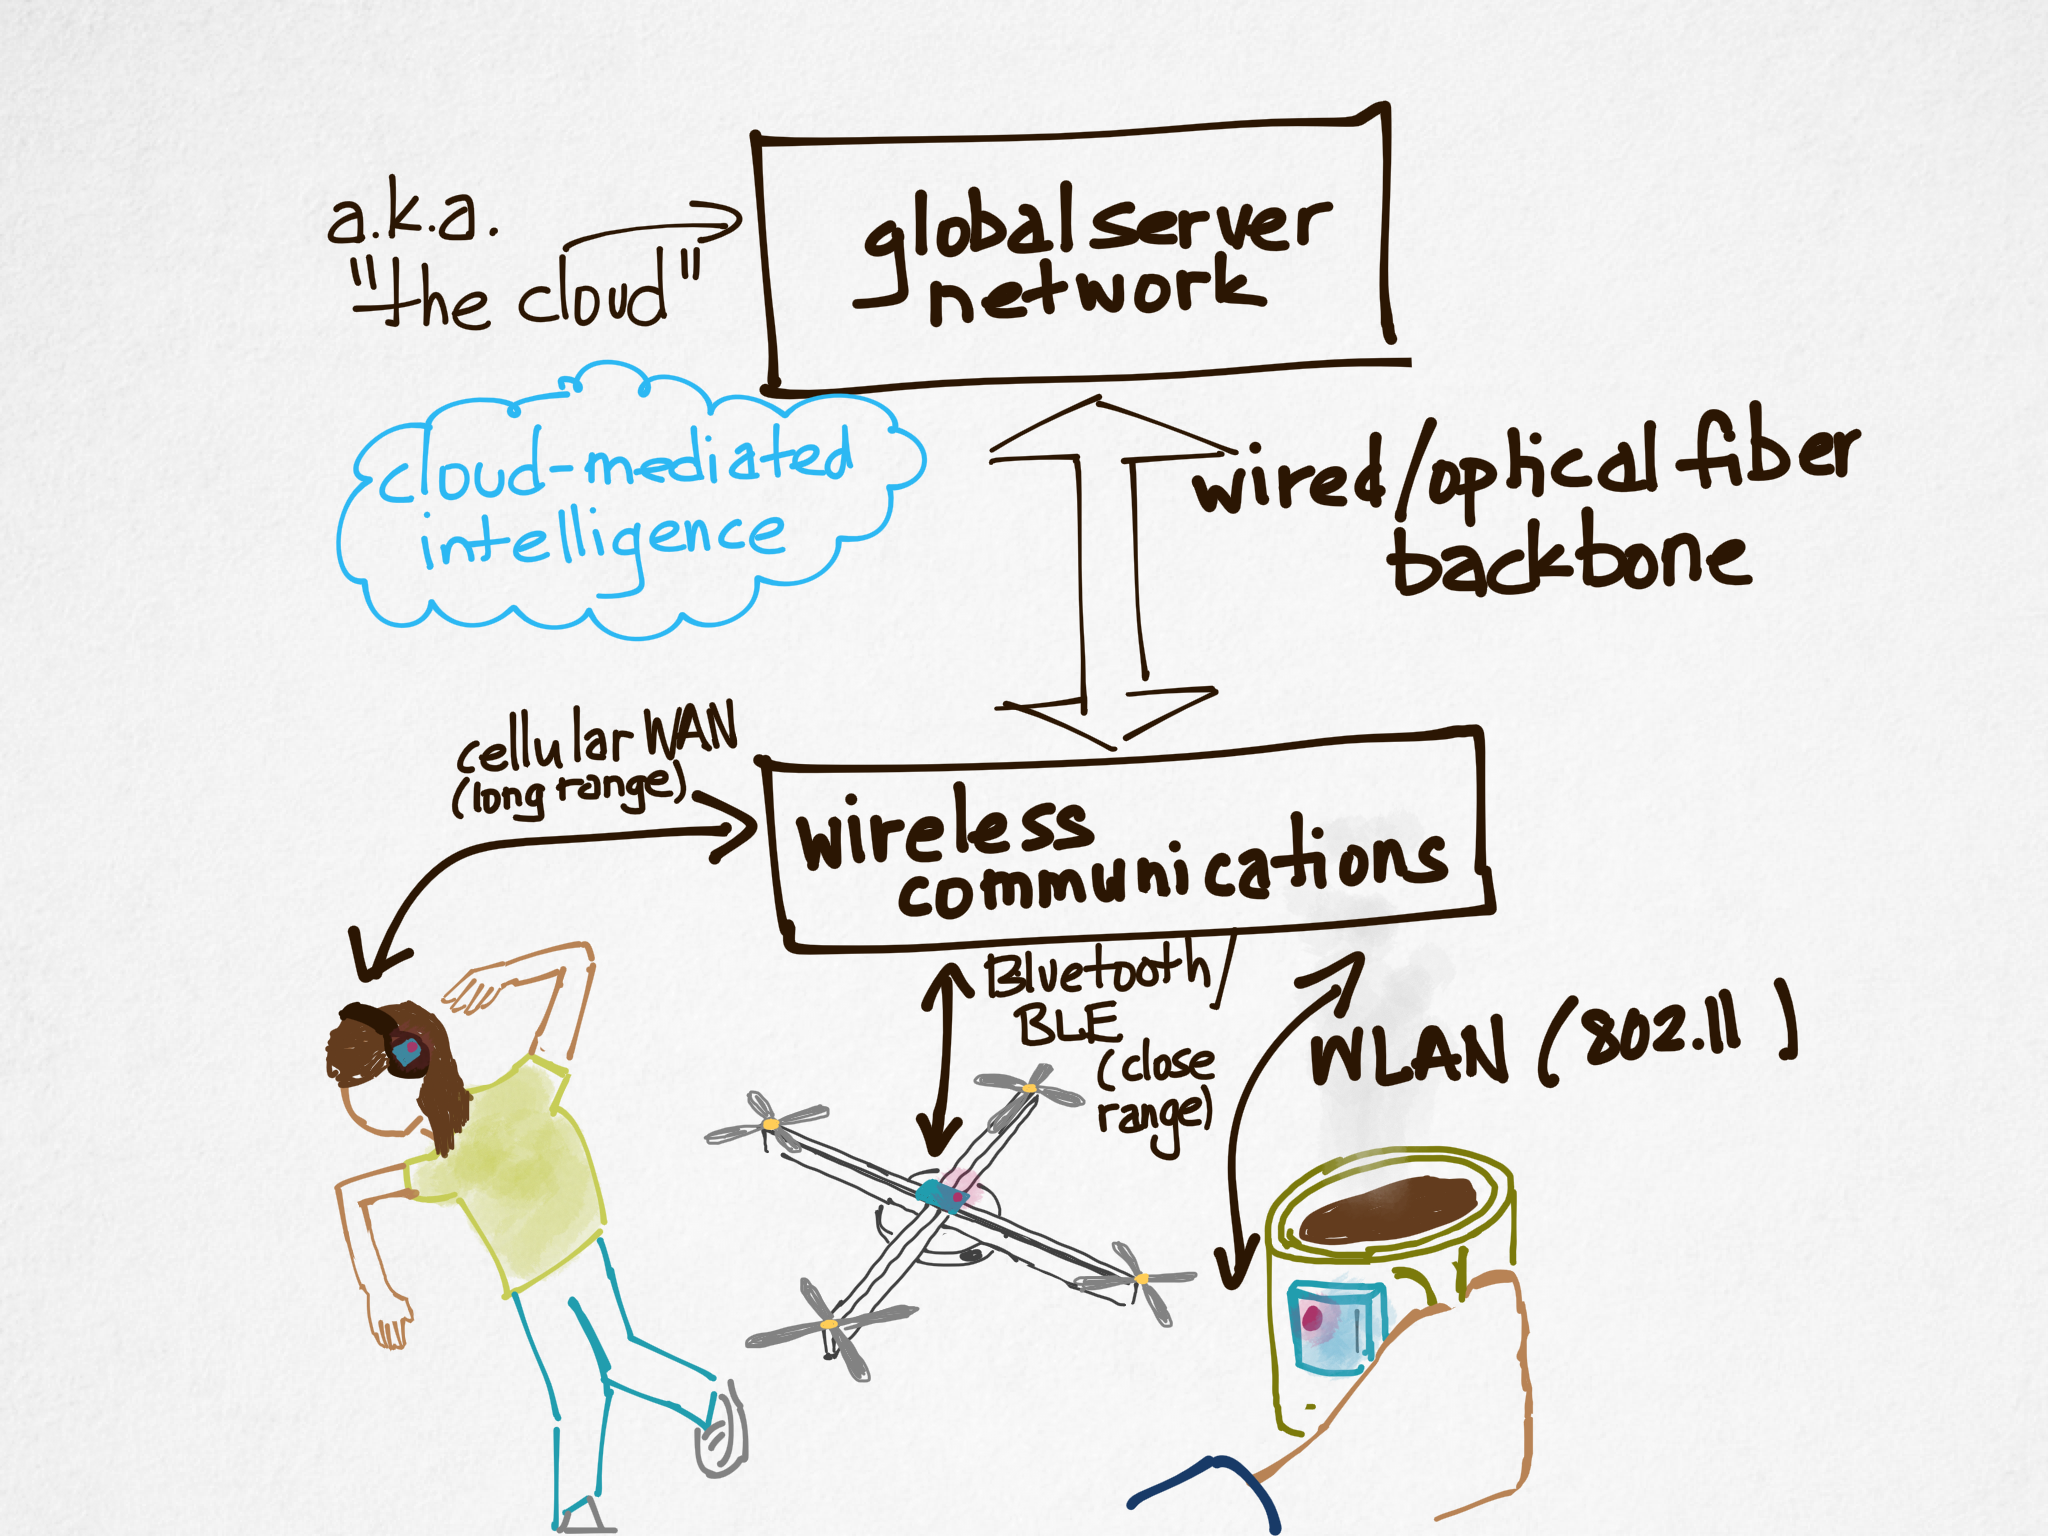 a.k.a.
"the cloud"
global server
network
cloud-mediated
intelligence
wired/optical fiber
backbone
cellular WAN
(long range)
wireless
communications
Bluetooth/
BLE
(close
range)
WLAN (802.11)